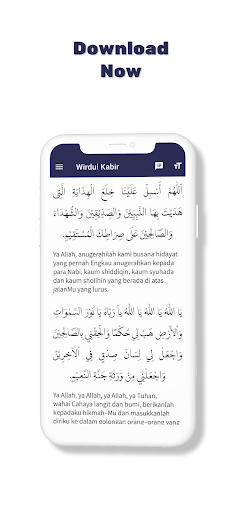 Download
Now
Wirdul Kabir
اَللّٰهُمَّ أَسْبِلْ عَلَيْنَا خِلَعَ الْهِدَايَةِ الَّتِى
هَدَيْتَ بِهَا النَّبِيِّيْنَ وَالصِّدِّيْقِيْنَ وَالشُّهَدَاءَ
وَالصَّالِحِيْنَ عَلَى صِرَاطِكَ الْمُسْتَقِيْمِ.
Ya Allah, anugerahilah kami busana hidayat
yang pernah Engkau anugerahkan kepada
para Nabi, kaum shiddiqin, kaum syuhada
dan kaum sholihin yang berada di atas
jalanMu yang lurus.
يَا اللهُ يَا اللهُ يَا اللهُ يَا رَبَّاهُ يَا نُوْرَ السَّمٰوَاتِ
وَالْأَرْضِ هَبْ لِى حُكْمًا وَأَلْحِقْنِى بِالصَّالِحِيْنَ
وَاجْعَلْ لِى لِسَانَ صِدْقٍ فِى الْآخِرِيْنَ
وَاجْعَلْنِى مِنْ وَرَثَةِ جَنَّةِ النَّعِيْمِ.
Ya Allah, ya Allah, ya Allah, ya Tuhan,
wahai Cahaya langit dan bumi, berikanlah
kepadaku hikmah-Mu dan masukkanlah
diriku ke dalam golongan orang-orang yang